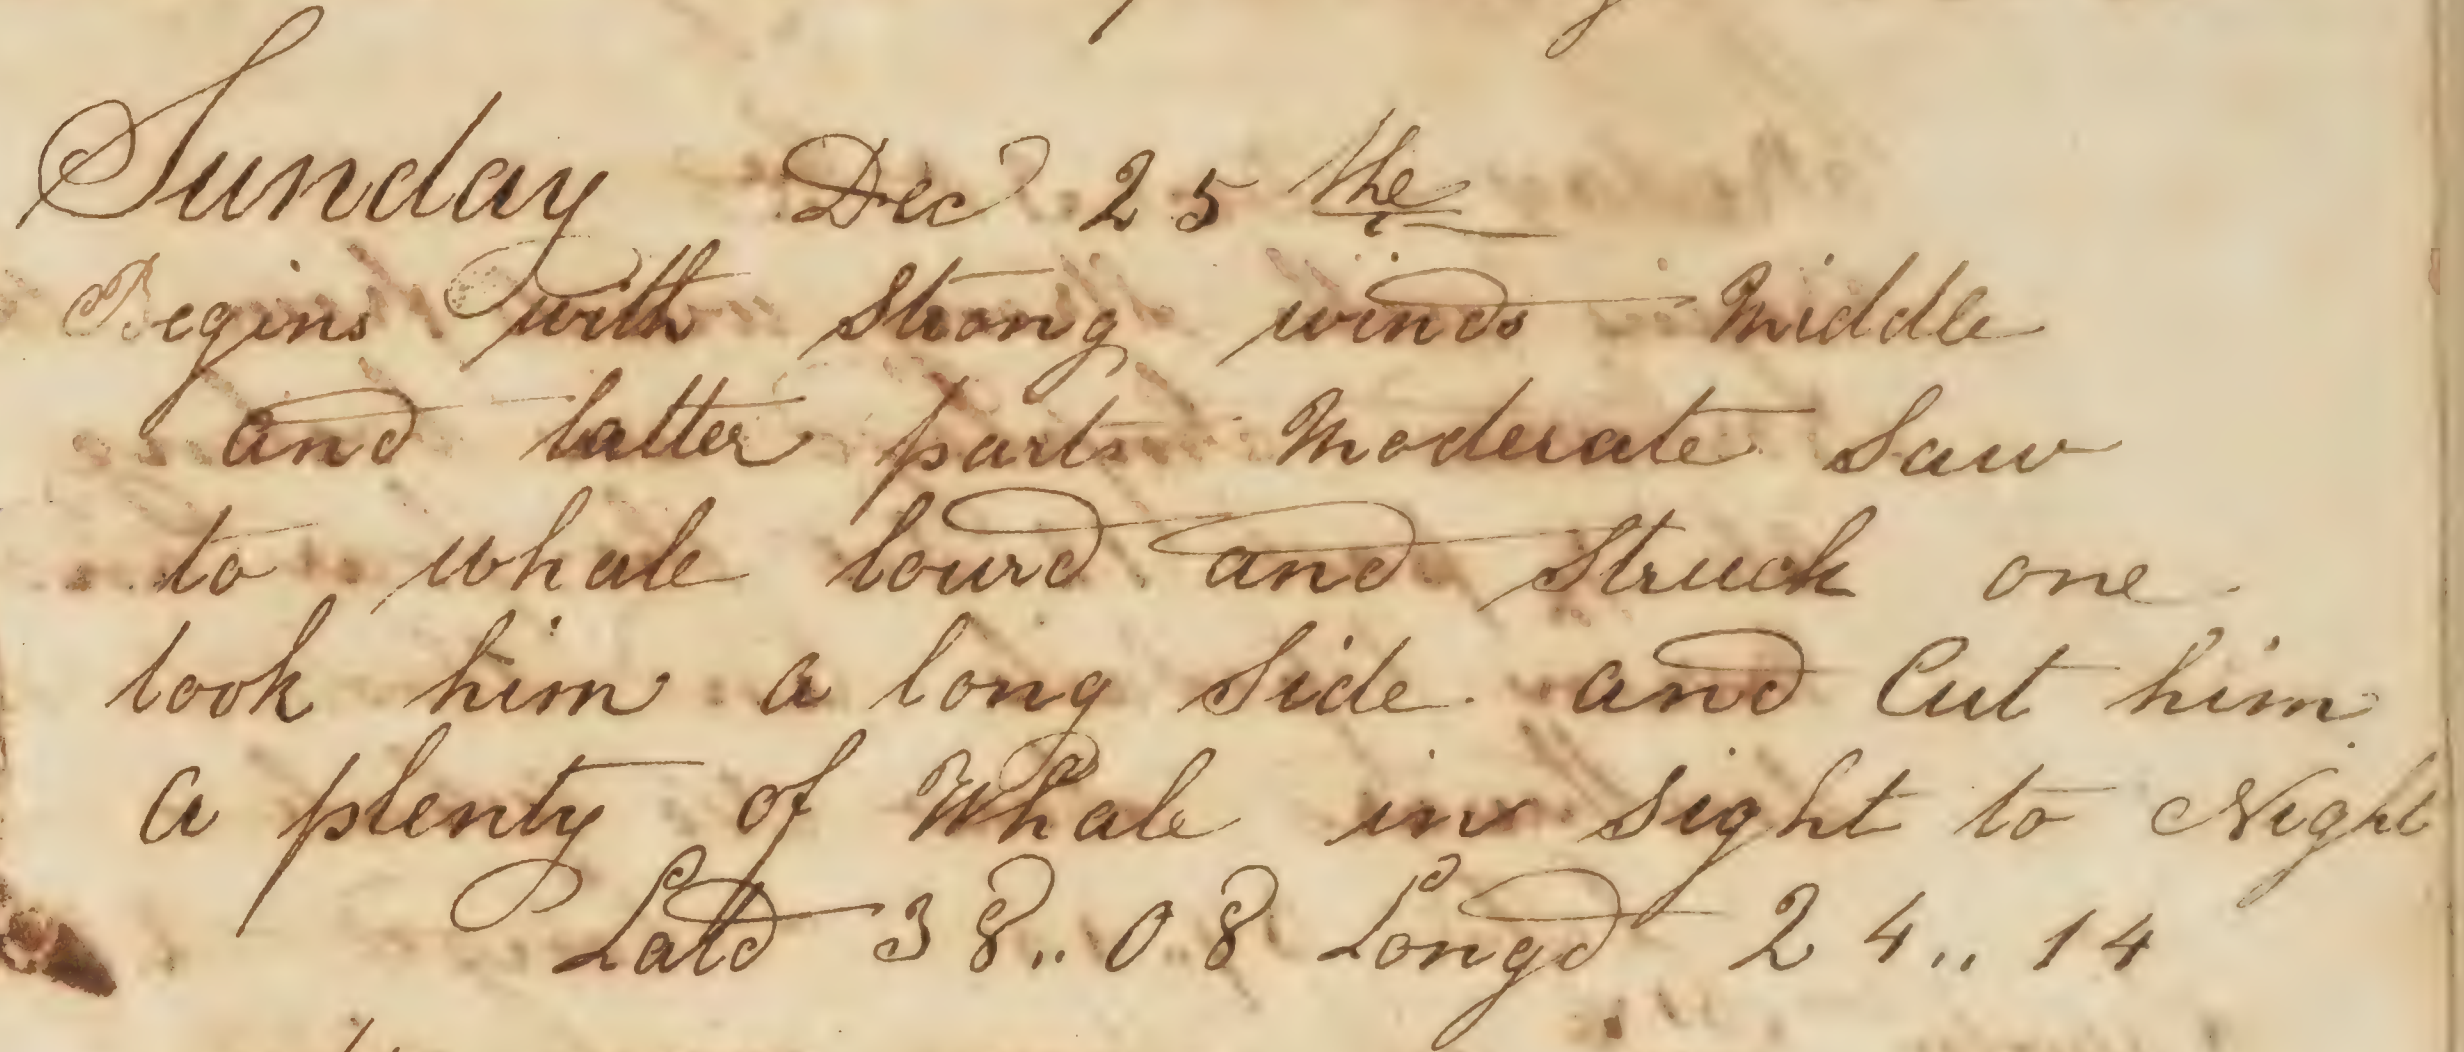 Sunday Dec 25 the
Begins with Strong winds Middle
and latter parts Moderate Saw
to whale lourd and Struck one
took him a long Side and Cut him
a plenty of Whale in sight to Night
Latd 38..08 Longd 24..14